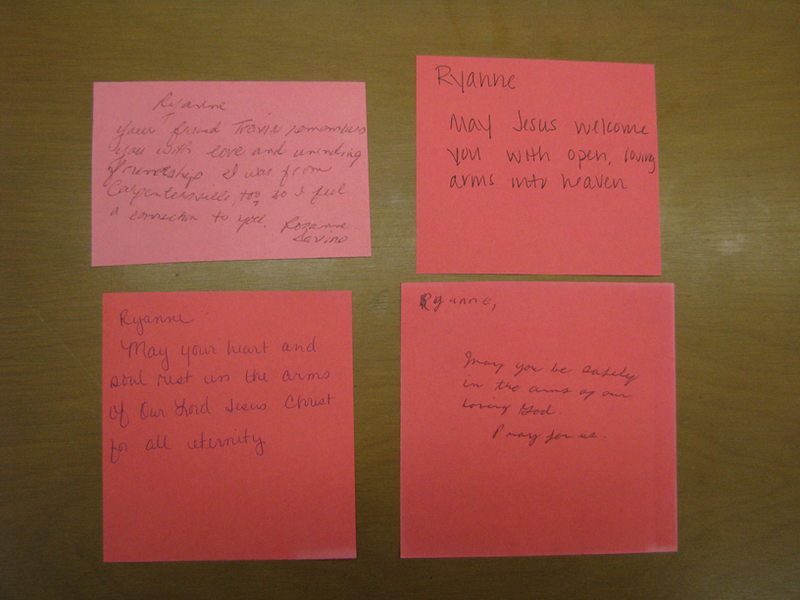 Ryanne
Your friend Travis remembers
you with love and unending
friendship. I was from
Carpentersville, too, so I feel
a connection to you. Rozanne
Savino
Ryanne
May Jesus welcome
you with open, loving
arms into heaven
Ryanne
May your heart and
soul rest in the arms
of Our Lord Jesus Christ
for all eternity.
Ryanne,
May you be safely
in the arms of our
loving God.
Pray for us.